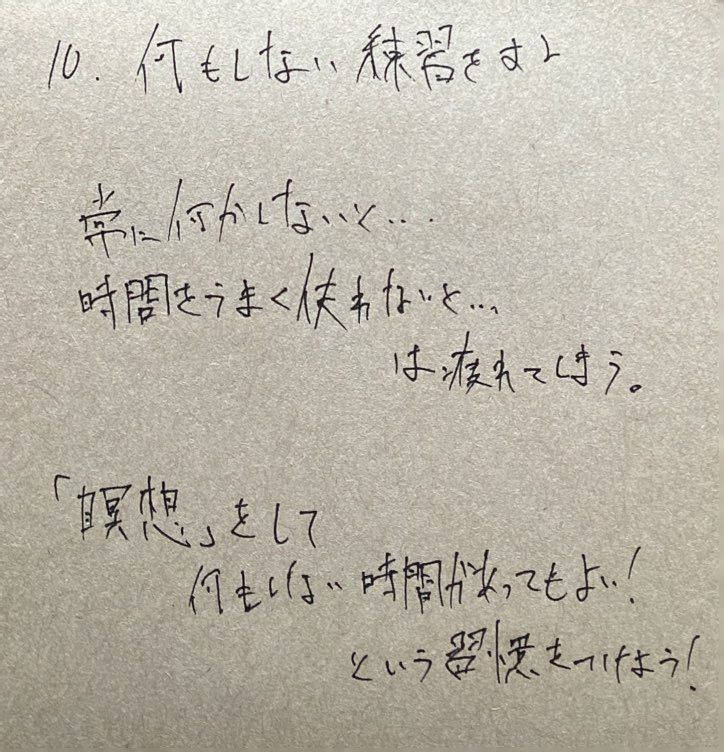 10. 何もしない練習をする
常に何かしないと...
時間をうまく使わないと...
は疲れてしまう。
「瞑想」をして
何もしない時間があってもよい!
という習慣をつけよう!